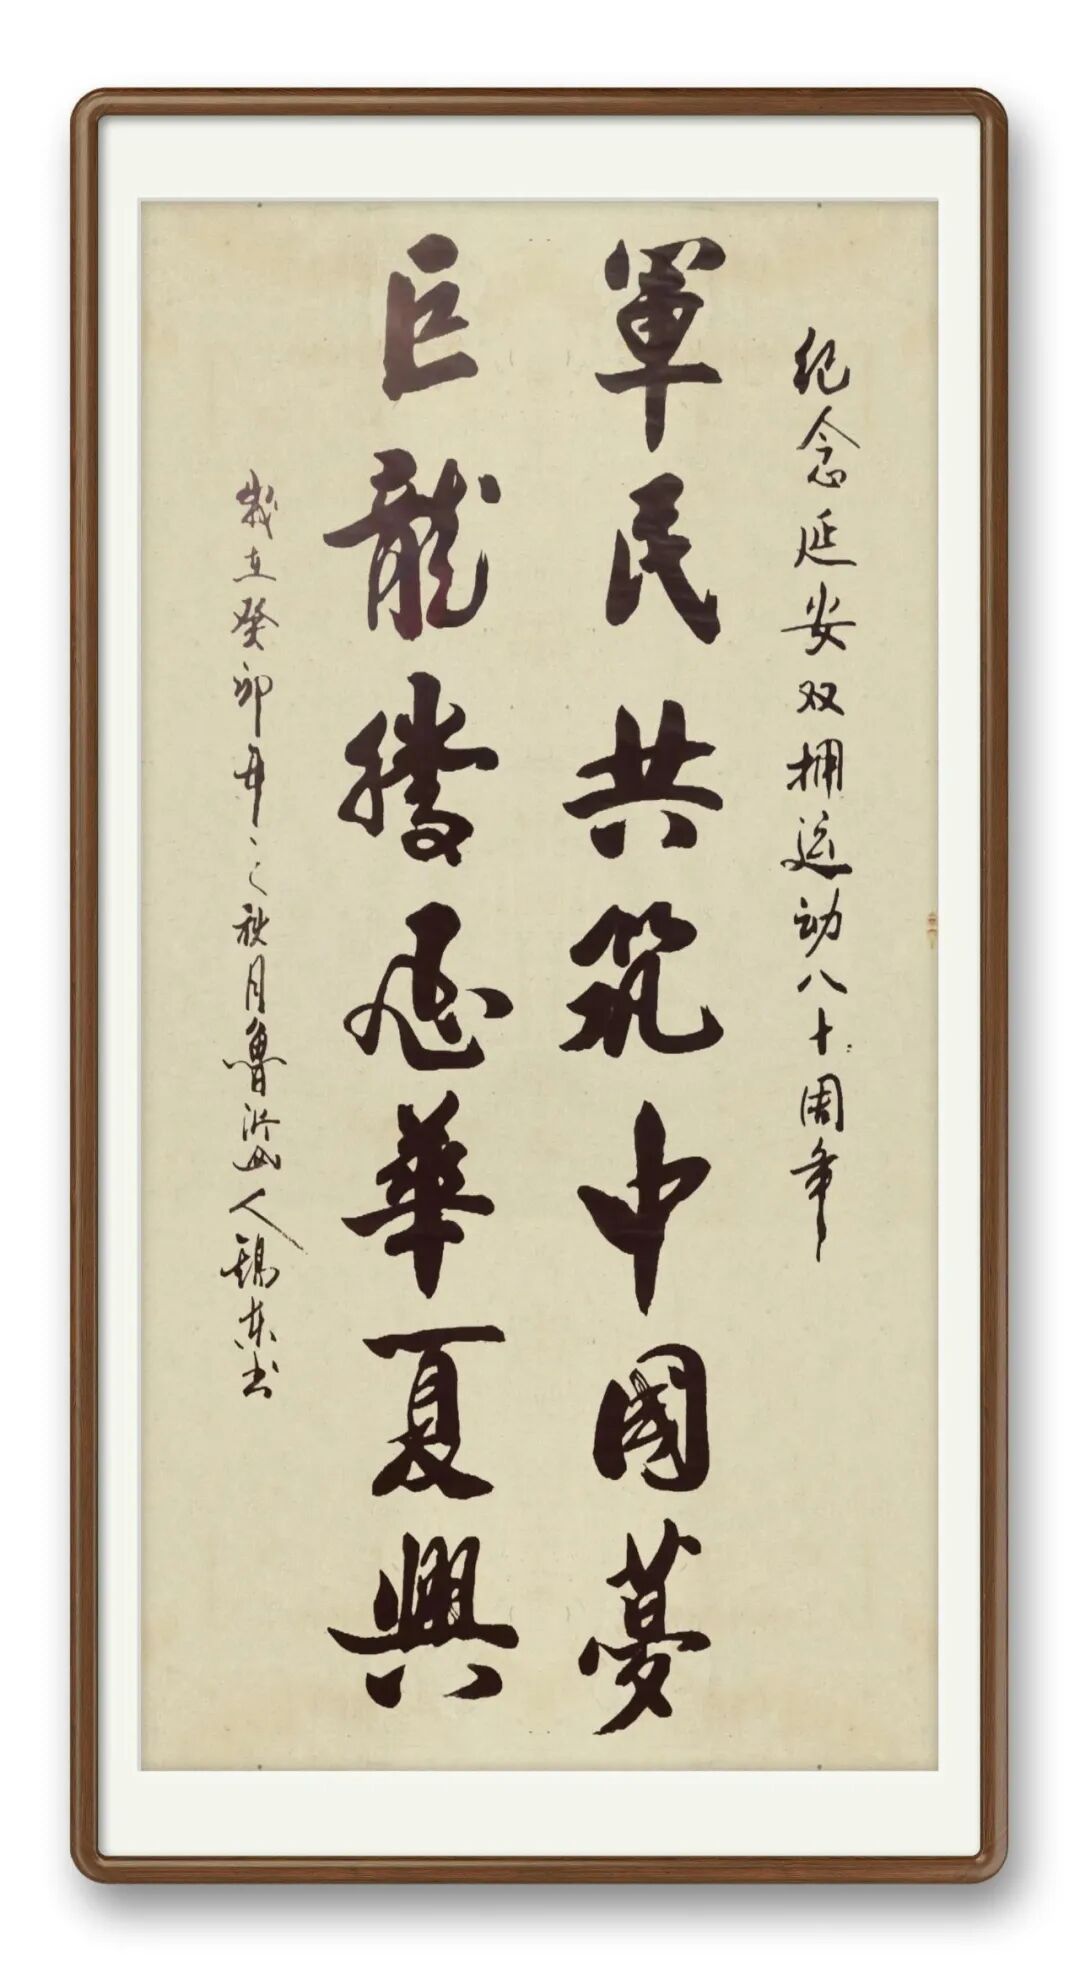 纪念延安双拥运动八十周年
軍民共筑中國夢
巨龍騰飛華夏興
歲在癸卯年之秋月魯沂山人錫东书